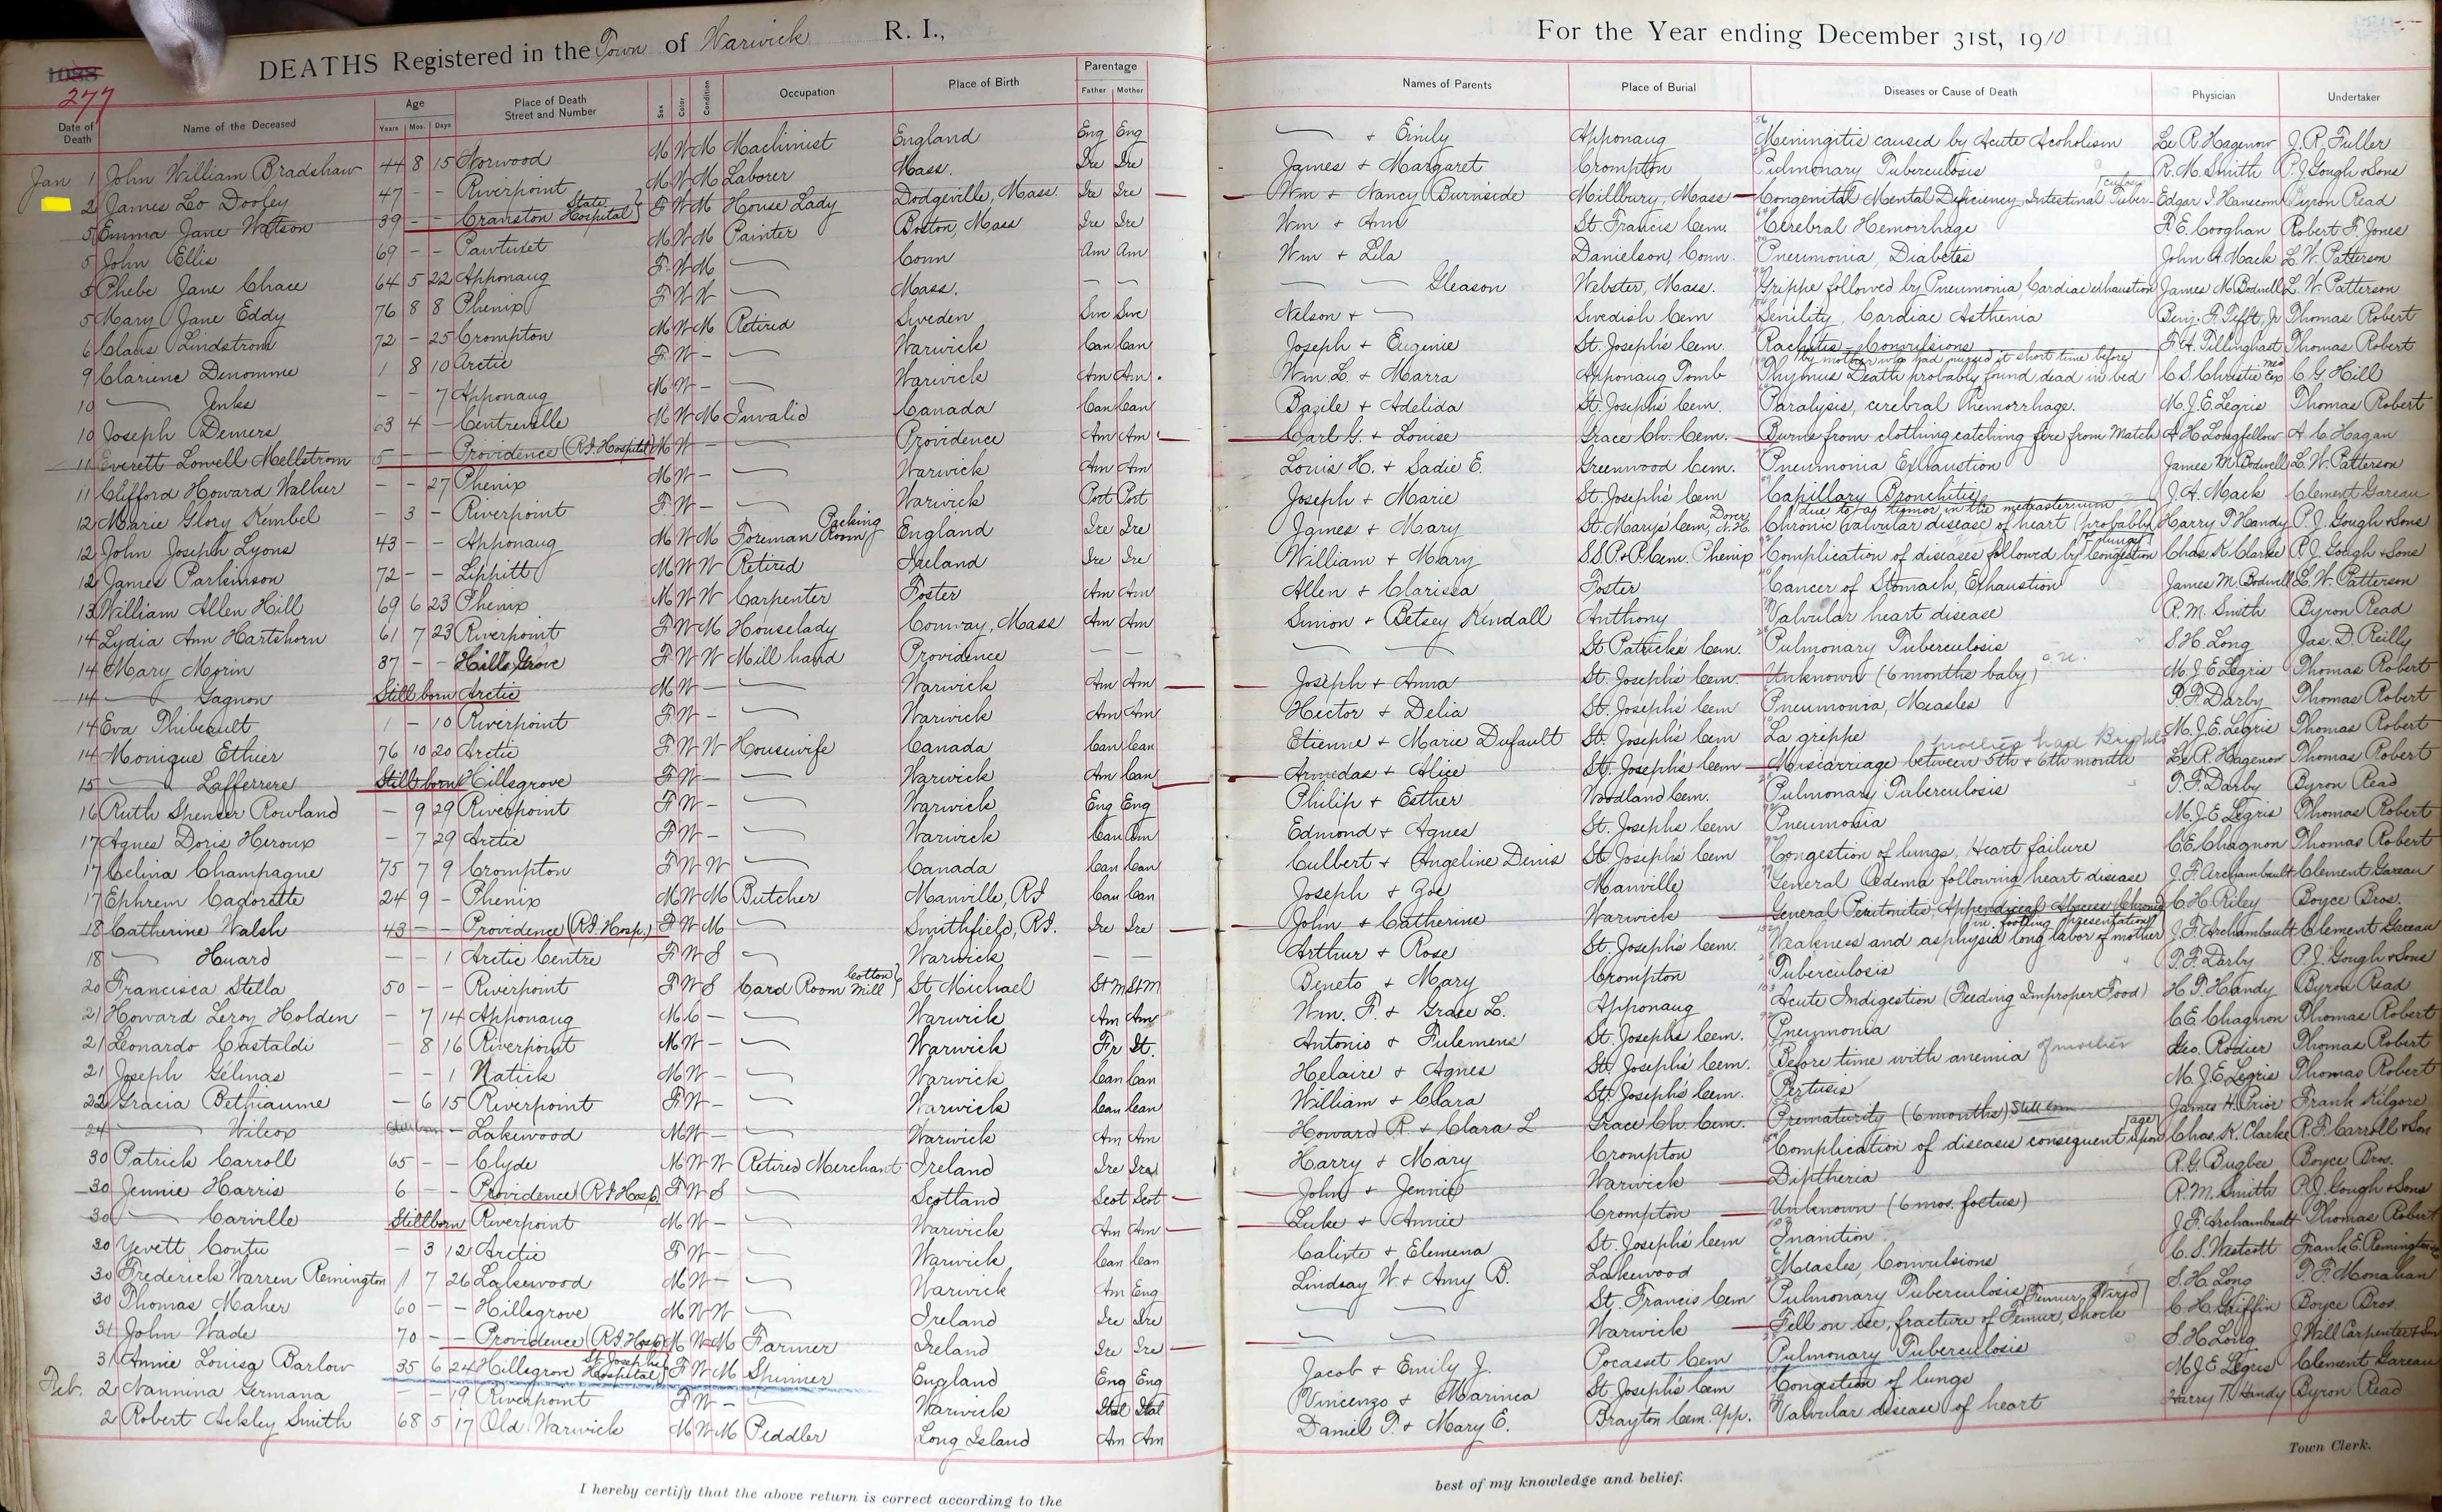 DEATHS Registered in the Town of Warwick R. I.,
For the Year ending December 31st, 1910
1088
277
Date of Death Name of the Deceased Age Years Mos. Days Place of Death Street and Number Sex Color Condition Occupation Place of Birth Parentage Father Mother Names of Parents Place of Burial Diseases or Cause of Death Physician Undertaker
Jan 1 John William Bradshaw 44 8 15 Norwood M W M Machinist England Eng Eng — + Emily Apponaug Meningitis caused by Acute Acoholism Le R Hagenow J. R. Fuller
2 James Leo Dooley 47 - - Riverpoint M W M Laborer Mass. Ire Ire James + Margaret Crompton Pulmonary Tuberculosis R. M. Smith P. J. Gough + Sons
5 Emma Jane Watson 39 - - Cranston State Hospital F W M House Lady Dodgeville, Mass. Ire Ire Wm + Nancy Burnside Millbury, Mass Congenital Mental Deficiency, Intestinal Tuber- culosis Edgar I. Hanscom Byron Read
5 John Ellis 69 - - Pawtuxet M W M Painter Boston, Mass Ire Ire Wm + Ann St. Francis Cem. Cerebral Hemorrhage F. E. Cooghan Robert F. Jones
5 Phebe Jane Chace 64 5 22 Apponaug F W M — Conn Am Am Wm + Lila Danielson, Conn. Pneumonia, Diabetes John A. Mack L. W. Patterson
5 Mary Jane Eddy 76 8 8 Phenix F W W — Mass. — — — — Gleason Webster, Mass. Grippe followed by Pneumonia Cardiac exhaustion James M. Bodwell L. W. Patterson
6 Claus Lindstrom 72 - 25 Crompton M W M Retired Sweden Swe Swe Nelson + — Swedish Cem Senility, Cardiac Asthenia Benj. F. Tefft, Jr Thomas Robert
9 Clarienc Denomme 1 8 10 Arctic F W - — Warwick Can Can Joseph + Eugenie St. Joseph's Cem. Rachitis - Convulsions F. A. Tillinghast Thomas Robert
10 — Jenks - - 7 Apponaug M W - — Warwick Am Am. Wm. L. + Marra Apponaug Tomb Thymus Death probably found dead in bed by mother who had nursed it short time before C. S. Christie Med Ex C. G. Hill
10 Joseph Demers 63 4 - Centreville M W M Invalid Canada Can Can Bazile + Adelida St. Joseph's Cem. Paralysis, cerebral hemorrhage. M. J. E. Legris Thomas Robert
11 Everett Lowell Mellstrom 5 - - Providence (R.I. Hospital) M W - — Providence Am Am Carl G. + Louise Grace Ch. Cem. Burns from clothing catching fire from Match A. H. Longfellow A. C. Hagan
11 Clifford Howard Walker - - 27 Phenix M W - — Warwick Am Am Louis H. + Sadie E. Greenwood Cem. Pneumonia Exhaustion James M. Bodwell L. W. Patterson
12 Marie Glory Kembel - 3 - Riverpoint F W - — Warwick Port Port Joseph + Marie St. Joseph's Cem Capillary Bronchitis J. A. Mack Clement Gareau
12 John Joseph Lyons 43 - - Apponaug M W M Foreman Packing Room England Ire Ire James + Mary St. Mary's Cem, Dover, N.H. Chronic valvular disease of heart (probably due to a tumor in the mediasternum Harry T. Handy P. J. Gough + Sons
12 James Parkinson 72 - - Lippitt M W W Retired Ireland Ire Ire William + Mary S.S. P+P. Cem. Phenix Complication of diseases followed by Congestion of lungs Chas. K. Clarke P. J. Gough + Sons
13 William Allen Hill 69 6 23 Phenix M W W Carpenter Foster Am Am Allen + Clarissa Foster Cancer of Stomach, Exhaustion James M. Bodwell L. W. Patterson
14 Lydia Ann Hartshorn 61 7 23 Riverpoint F W M Houselady Conway, Mass Am Am Simon + Betsey Kendall Anthony Valvular heart disease R. M. Smith Byron Read
14 Mary Morin 37 - - Hills Grove F W W Mill hand Providence — — — — St. Patrick's Cem. Pulmonary Tuberculosis S. H. Long Jas. D. Reilly
14 — Gagnon Still born Arctic M W — — Warwick Am Am Joseph + Anna St. Joseph's Cem. Unknown (6 months baby) M. J. E. Legris Thomas Robert
14 Eva Thibeault 1 - 10 Riverpoint F W - — Warwick Am Am Hector + Delia St. Joseph's Cem Pneumonia, Measles P. F. Darby Thomas Robert
14 Monique Ethier 76 10 20 Arctic F W W Housewife Canada Can Can Etienne + Marie Dufault St. Joseph's Cem La grippe M. J. E. Legris Thomas Robert
15 — Lafferrere Still born Hillsgrove F W - — Warwick Am Can Armedas + Alice St. Joseph's Cem Miscarriage between 5th + 6th month mother had Brights Le R. Hagenow Thomas Robert
16 Ruth Spencer Rowland - 9 29 Riverpoint F W - — Warwick Eng Eng Philip + Esther Woodland Cem. Pulmonary Tuberculosis P. F. Darby Byron Read
17 Agnes Doris Heroux - 7 29 Arctic F W - — Warwick Can Am Edmond + Agnes St. Joseph's Cem Pneumonia M. J. E. Legris Thomas Robert
17 Celina Champagne 75 7 9 Crompton F W W — Canada Can Can Culbert + Angeline Denis St. Joseph's Cem Congestion of lungs, Heart failure C. E. Chagnon Thomas Robert
17 Ephrem Cadorette 24 9 - Phenix M W M Butcher Manville, R.I Can Can Joseph + Zoe Manville General Oedema following heart disease J. F. Archambault Clement Gareau
18 Catherine Walsh 43 - - Providence (R.I Hosp.) F W M — Smithfield, R.I. Ire Ire John + Catherine Warwick General Peritonitis, Appendiceal Abscess Chronic C. H. Riley Boyce Bros.
18 — Huard - - 1 Arctic Centre F W S — Warwick — — Arthur + Rose St. Joseph's Cem. Weakness and asphysia long labor of mother in footling presentation J. F. Archambault Clement Gareau
20 Francisca Stella 50 - - Riverpoint F W S Card Room Cotton Mill St Michael St M St M Beneto + Mary Crompton Tuberculosis P. F. Darby P. J. Gough + Sons
21 Howard Leroy Holden - 7 14 Apponaug M C - — Warwick Am Am Wm. F. + Grace L. Apponaug Acute Indigestion (Feeding Improper Food) H. T. Handy Byron Read
21 Leonardo Castaldi - 8 16 Riverpoint M W - — Warwick Fr It. Antonio + Fulemena St. Joseph's Cem. Pneumonia C. E. Chagnon Thomas Robert
21 Joseph Gélinas - - 1 Natick M W - — Warwick Can Can Helaire + Agnes St. Joseph's Cem. Before time with anemia of mother Geo. Rodier Thomas Robert
22 Gracia Bethiaume - 6 15 Riverpoint F W - — Warwick Can Can William + Clara St. Joseph's Cem. Pertusis M. J. E. Legris Thomas Robert
24 — Wilcox Stillborn - Lakewood M W - — Warwick Am Am Howard R. + Clara L Grace Ch. Cem. Prematurity (6 months) Still born James H. Prior Frank Kilgore
30 Patrick Carroll 65 - - Clyde M W W Retired Merchant Ireland Ire Ire Harry + Mary Crompton Complication of diseases consequent upon age Chas. K. Clarke R. F. Carroll + Son
30 Jennie Harris 6 - - Providence (R I Hosp) F W S — Scotland Scot Scot John + Jennie Warwick Diptheria R. G. Bugbee Boyce Bros.
30 — Carville Stillborn Riverpoint M W - — Warwick Am Am Luke + Annie Crompton Unknown (6 mos. foetus) R. M. Smith P. J. Gough + Sons
30 Yevett Coutu - 3 12 Arctic F W - — Warwick Can Can Calixte + Elemena St. Joseph's Cem Inanition J. F. Archambault Thomas Robert
30 Frederick Warren Remington 1 7 26 Lakewood M W - — Warwick Am Eng Lindsay W. + Amy B. Lakewood Measles, Convulsions C. S. Westcott Frank E. Remington
30 Thomas Maher 60 - - Hillsgrove M W W — Ireland Ire Ire — — St. Francis Cem Pulmonary Tuberculosis S. H. Long T. F. Monahan
31 John Wade 70 - - Providence (R I Hosp) M W M Farmer Ireland Ire Ire — — Warwick Fell on ice, fracture of Femur, Shock Femur, Wired C. H. Griffin Boyce Bros.
31 Annie Louisa Barlow 35 6 24 Hillsgrove St. Joseph's Hospital F W M Spinner England Eng Eng Jacob + Emily J. Pocasset Cem Pulmonary Tuberculosis S. H. Long J. Will Carpenter + Son
Feb. 2 Nannina Germana - - 19 Riverpoint F W - — Warwick Ital Ital Vincenzo + Marinca St. Joseph's Cem Congestion of lungs M. J. E. Legris Clement Gareau
2 Robert Ackley Smith 68 5 17 Old Warwick M W M Peddler Long Island Am Am Daniel P. + Mary E. Brayton Cem. App. Valvular disease of heart Harry T. Handy Byron Read
Town Clerk.
I hereby certify that the above return is correct according to the best of my knowledge and belief.